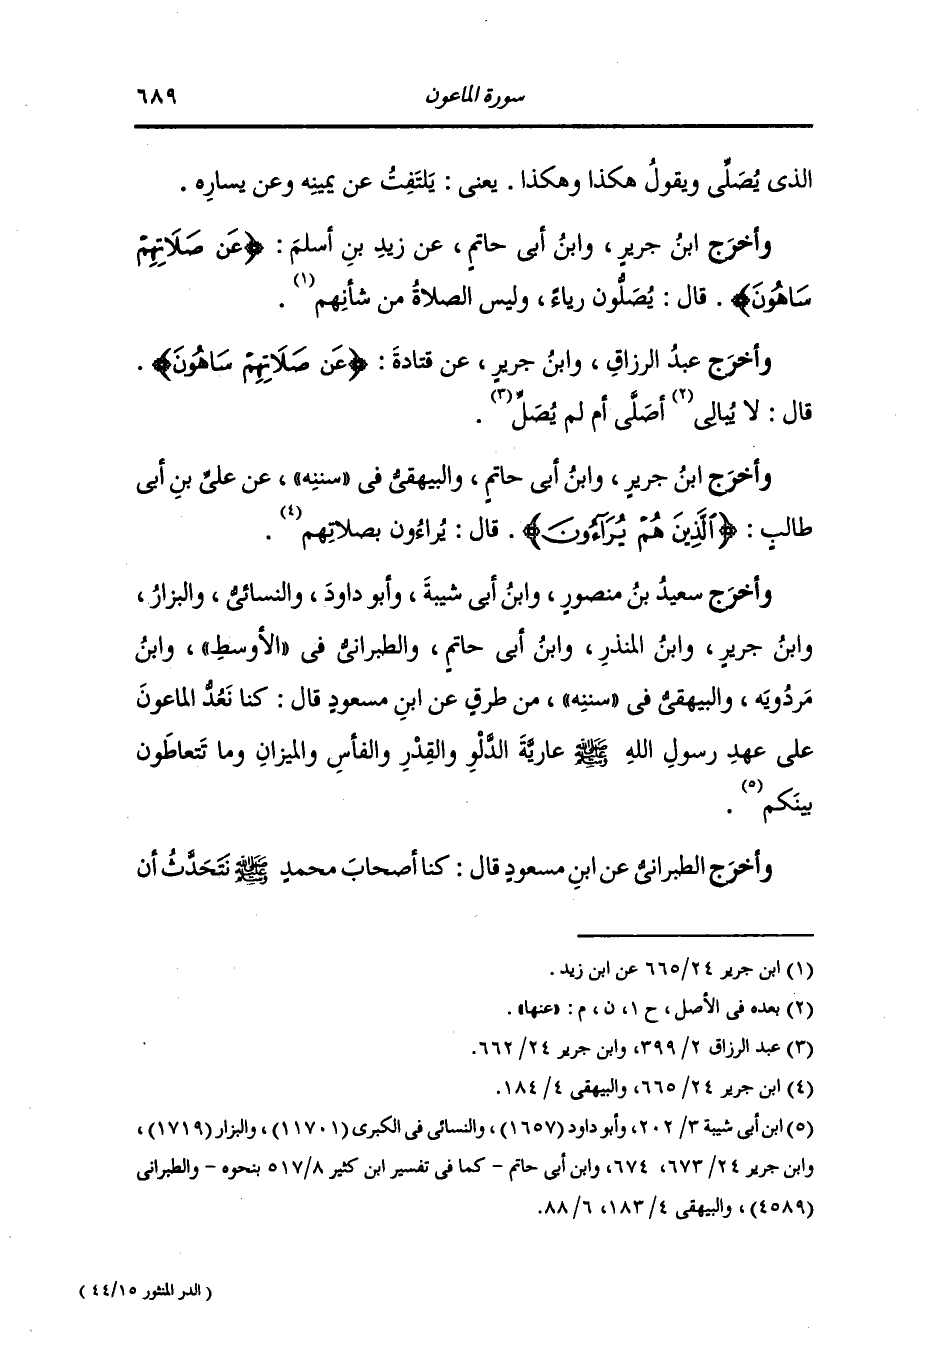 سورة الماعون ٦٨٩
الذى يُصَلِّى ويقولُ هكذا وهكذا . يعنى : يَلتَفِتُ عن يمينِه وعن يسارِه .
وأخرَج ابنُ جريرٍ ، وابنُ أبى حاتمٍ ، عن زيدِ بنِ أسلمَ : ﴿عَن صَلَاتِهِمْ
سَاهُونَ﴾ . قال : يُصَلُّون رياءً ، وليس الصلاةُ من شأنِهم(١) .
وأخرَج عبدُ الرزاقِ ، وابنُ جريرٍ ، عن قتادةَ : ﴿عَن صَلَاتِهِمْ سَاهُونَ﴾ .
قال : لا يُبالِى(٢) أصَلَّى أم لم يُصَلِّ(٣) .
وأخرَج ابنُ جريرٍ ، وابنُ أبى حاتمٍ ، والبيهقىُّ فى «سننِه» ، عن علىِّ بنِ أبى
طالبٍ : ﴿ٱلَّذِينَ هُمْ يُرَآءُونَ﴾ . قال : يُراءُون بصلاتِهم(٤) .
وأخرَج سعيدُ بنُ منصورٍ ، وابنُ أبى شيبةَ ، وأبو داودَ ، والنسائىُّ ، والبزارُ ،
وابنُ جريرٍ ، وابنُ المنذرِ ، وابنُ أبى حاتمٍ ، والطبرانىُّ فى «الأوسطِ» ، وابنُ
مَردُويَه ، والبيهقىُّ فى «سننِه» ، من طرقٍ عن ابنِ مسعودٍ قال : كنا نَعُدُّ الماعونَ
على عهدِ رسولِ اللهِ ﷺ عاريَّةَ الدَّلْوِ والقِدْرِ والفأسِ والميزانِ وما تَتعاطَون
بينَكم(٥) .
وأخرَج الطبرانىُّ عن ابنِ مسعودٍ قال : كنا أصحابَ محمدٍ ﷺ نَتَحَدَّثُ أن
(١) ابن جرير ٦٦٥/٢٤ عن ابن زيد .
(٢) بعده فى الأصل ، ح ١، ن ، م : «عنها» .
(٣) عبد الرزاق ٢/ ٣٩٩، وابن جرير ٢٤/ ٦٦٢.
(٤) ابن جرير ٢٤/ ٦٦٥، والبيهقى ٤/ ١٨٤.
(٥) ابن أبى شيبة ٣/ ٢٠٢، وأبو داود (١٦٥٧) ، والنسائى فى الكبرى (١١٧٠١) ، والبزار (١٧١٩) ،
وابن جرير ٢٤/ ٦٧٣، ٦٧٤، وابن أبى حاتم - كما فى تفسير ابن كثير ٥١٧/٨ بنحوه - والطبرانى
(٤٥٨٩) ، والبيهقى ٤/ ١٨٣، ٦/ ٨٨.
( الدر المنثور ٤٤/١٥ )